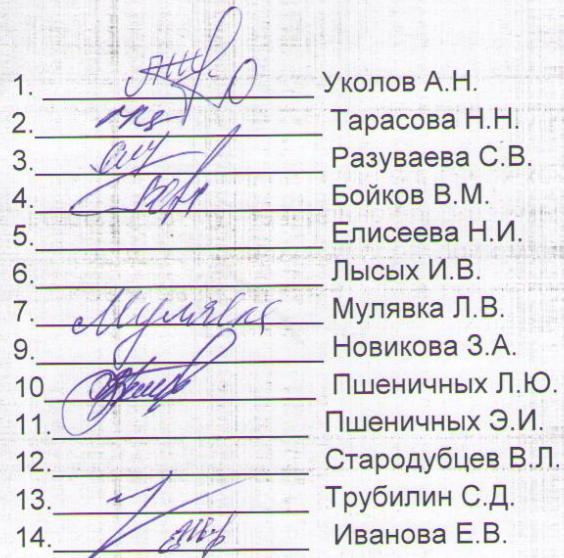 1. Уколов А.Н.
2. Тарасова Н.Н.
3. Разуваева С.В.
4. Бойков В.М.
5. Елисеева Н.И.
6. Лысых И.В.
7. Мулявка Мулявка Л.В.
9. Новикова З.А.
10 Пшеничных Л.Ю.
11. Пшеничных Э.И.
12. Стародубцев В.Л.
13. Трубилин С.Д.
14. Иванова Е.В.